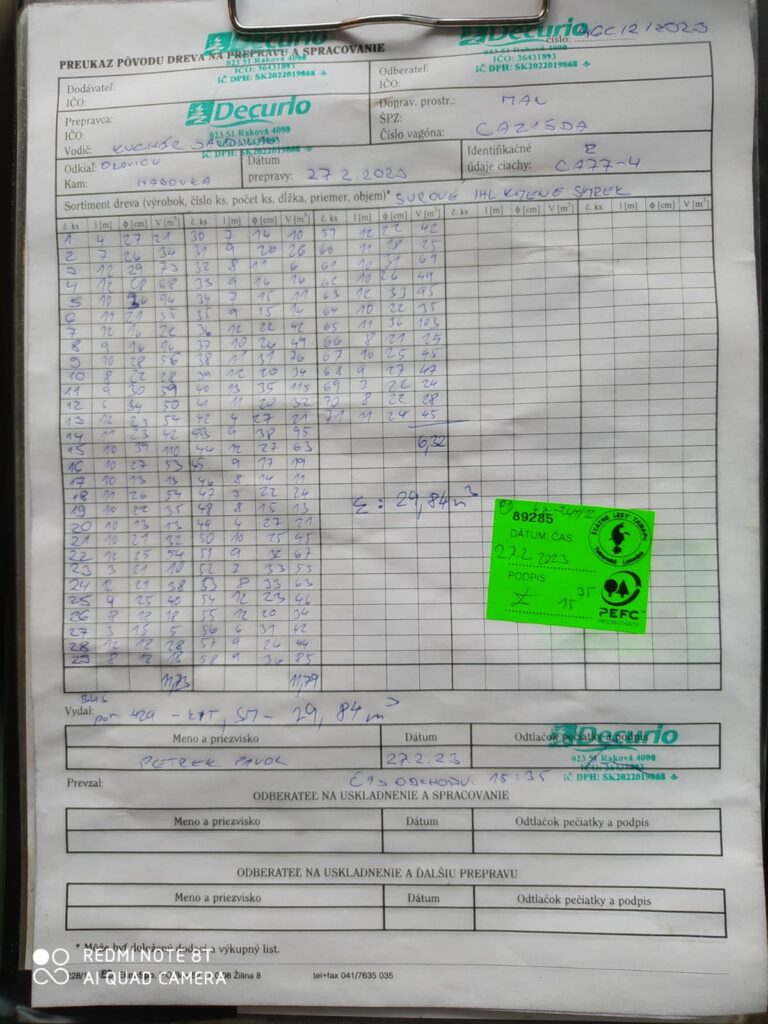 Decurio
023 51 Raková 4000
IČO: 36431893
IČ DPH: SK2022019868 -8-
Decurio
023 51 Raková 4000
IČO: 36431893
IČ DPH: SK2022019868 -8-
číslo: 12/2023
PREUKAZ PÔVODU DREVA NA PREPRAVU A SPRACOVANIE
Dodávateľ:
IČO:
Odberateľ:
IČO:
Prepravca:
IČO:
Decurio
023 51 Raková 4000
Vodič: KUCHÁR
Doprav. prostr.: MAN
ŠPZ:
Číslo vagóna:
Odkiaľ: ORAVICE
Kam: HABOVKA
Dátum
prepravy: 27 2. 2023
Identifikačné
údaje ciachy: CA77-4
Sortiment dreva (výrobok, číslo ks, počet ks, dĺžka, priemer, objem)* SUROVÉ IHL KMENE SMREK
č. ks l [m] ϕ [cm] V [m³] č. ks l [m] ϕ [cm] V [m³] č. ks l [m] ϕ [cm] V [m³] č. ks l [m] ϕ [cm] V [m³] č. ks l [m] ϕ [cm] V [m³]
1 4 27 21 30 7 14 10 59 12 22 42
2 7 26 34 31 9 20 26 60 11 18 25
3 12 29 73 32 8 11 6 61 10 31 69
4 12 28 68 33 9 16 16 62 10 26 49
5 10 36 94 34 7 15 11 63 12 33 95
6 11 21 35 35 9 15 14 64 10 22 35
7 12 16 22 36 12 22 42 65 11 36 103
8 9 16 16 37 10 26 49 66 8 21 25
9 10 28 56 38 11 31 76 67 10 25 45
10 8 22 28 39 12 20 34 68 9 27 47
11 9 30 59 40 13 35 115 69 7 22 24
12 6 34 50 41 11 20 32 70 8 22 28
13 12 25 54 42 4 27 21 71 11 24 45
14 11 23 42 43 9 38 95
15 10 39 110 44 12 27 63 6,32
16 10 27 53 45 9 17 19
17 10 13 13 46 8 14 11
18 11 26 54 47 7 22 24
19 10 22 35 48 8 15 13
20 10 13 13 49 4 27 21
21 10 21 32 50 10 25 45
22 12 25 54 51 9 32 67
23 3 21 10 52 7 33 55
24 21 38 53 8 33 63
25 25 40 54 12 23 46
26 8 18 18 55 12 20 34
27 3 15 5 56 6 31 42
28 12 18 28 57 9 26 44
29 8 18 18 58 9 36 85
11,73 11,79
Σ: 29,84 m³
89285
DÁTUM, ČAS
27.2 2023
PODPIS
15 35
PEFC
Vydal: por 429 - SM - 29,84 m³
Meno a priezvisko Dátum Odtlačok pečiatky a podpis
PETREK PAVOL 27.2.23
Decurio
023 51 Raková 4000
IČ DPH: SK2022019868 -8-
Prevzal: ČAS ODCHODU: 15:35
ODBERATEĽ NA USKLADNENIE A SPRACOVANIE
Meno a priezvisko Dátum Odtlačok pečiatky a podpis
ODBERATEĽ NA USKLADNENIE A ĎALŠIU PREPRAVU
Meno a priezvisko Dátum Odtlačok pečiatky a podpis
* Môže byť doložený dodací a výkupný list.
Žilina 8 tel+fax 041/7635 035
REDMI NOTE 8T
AI QUAD CAMERA